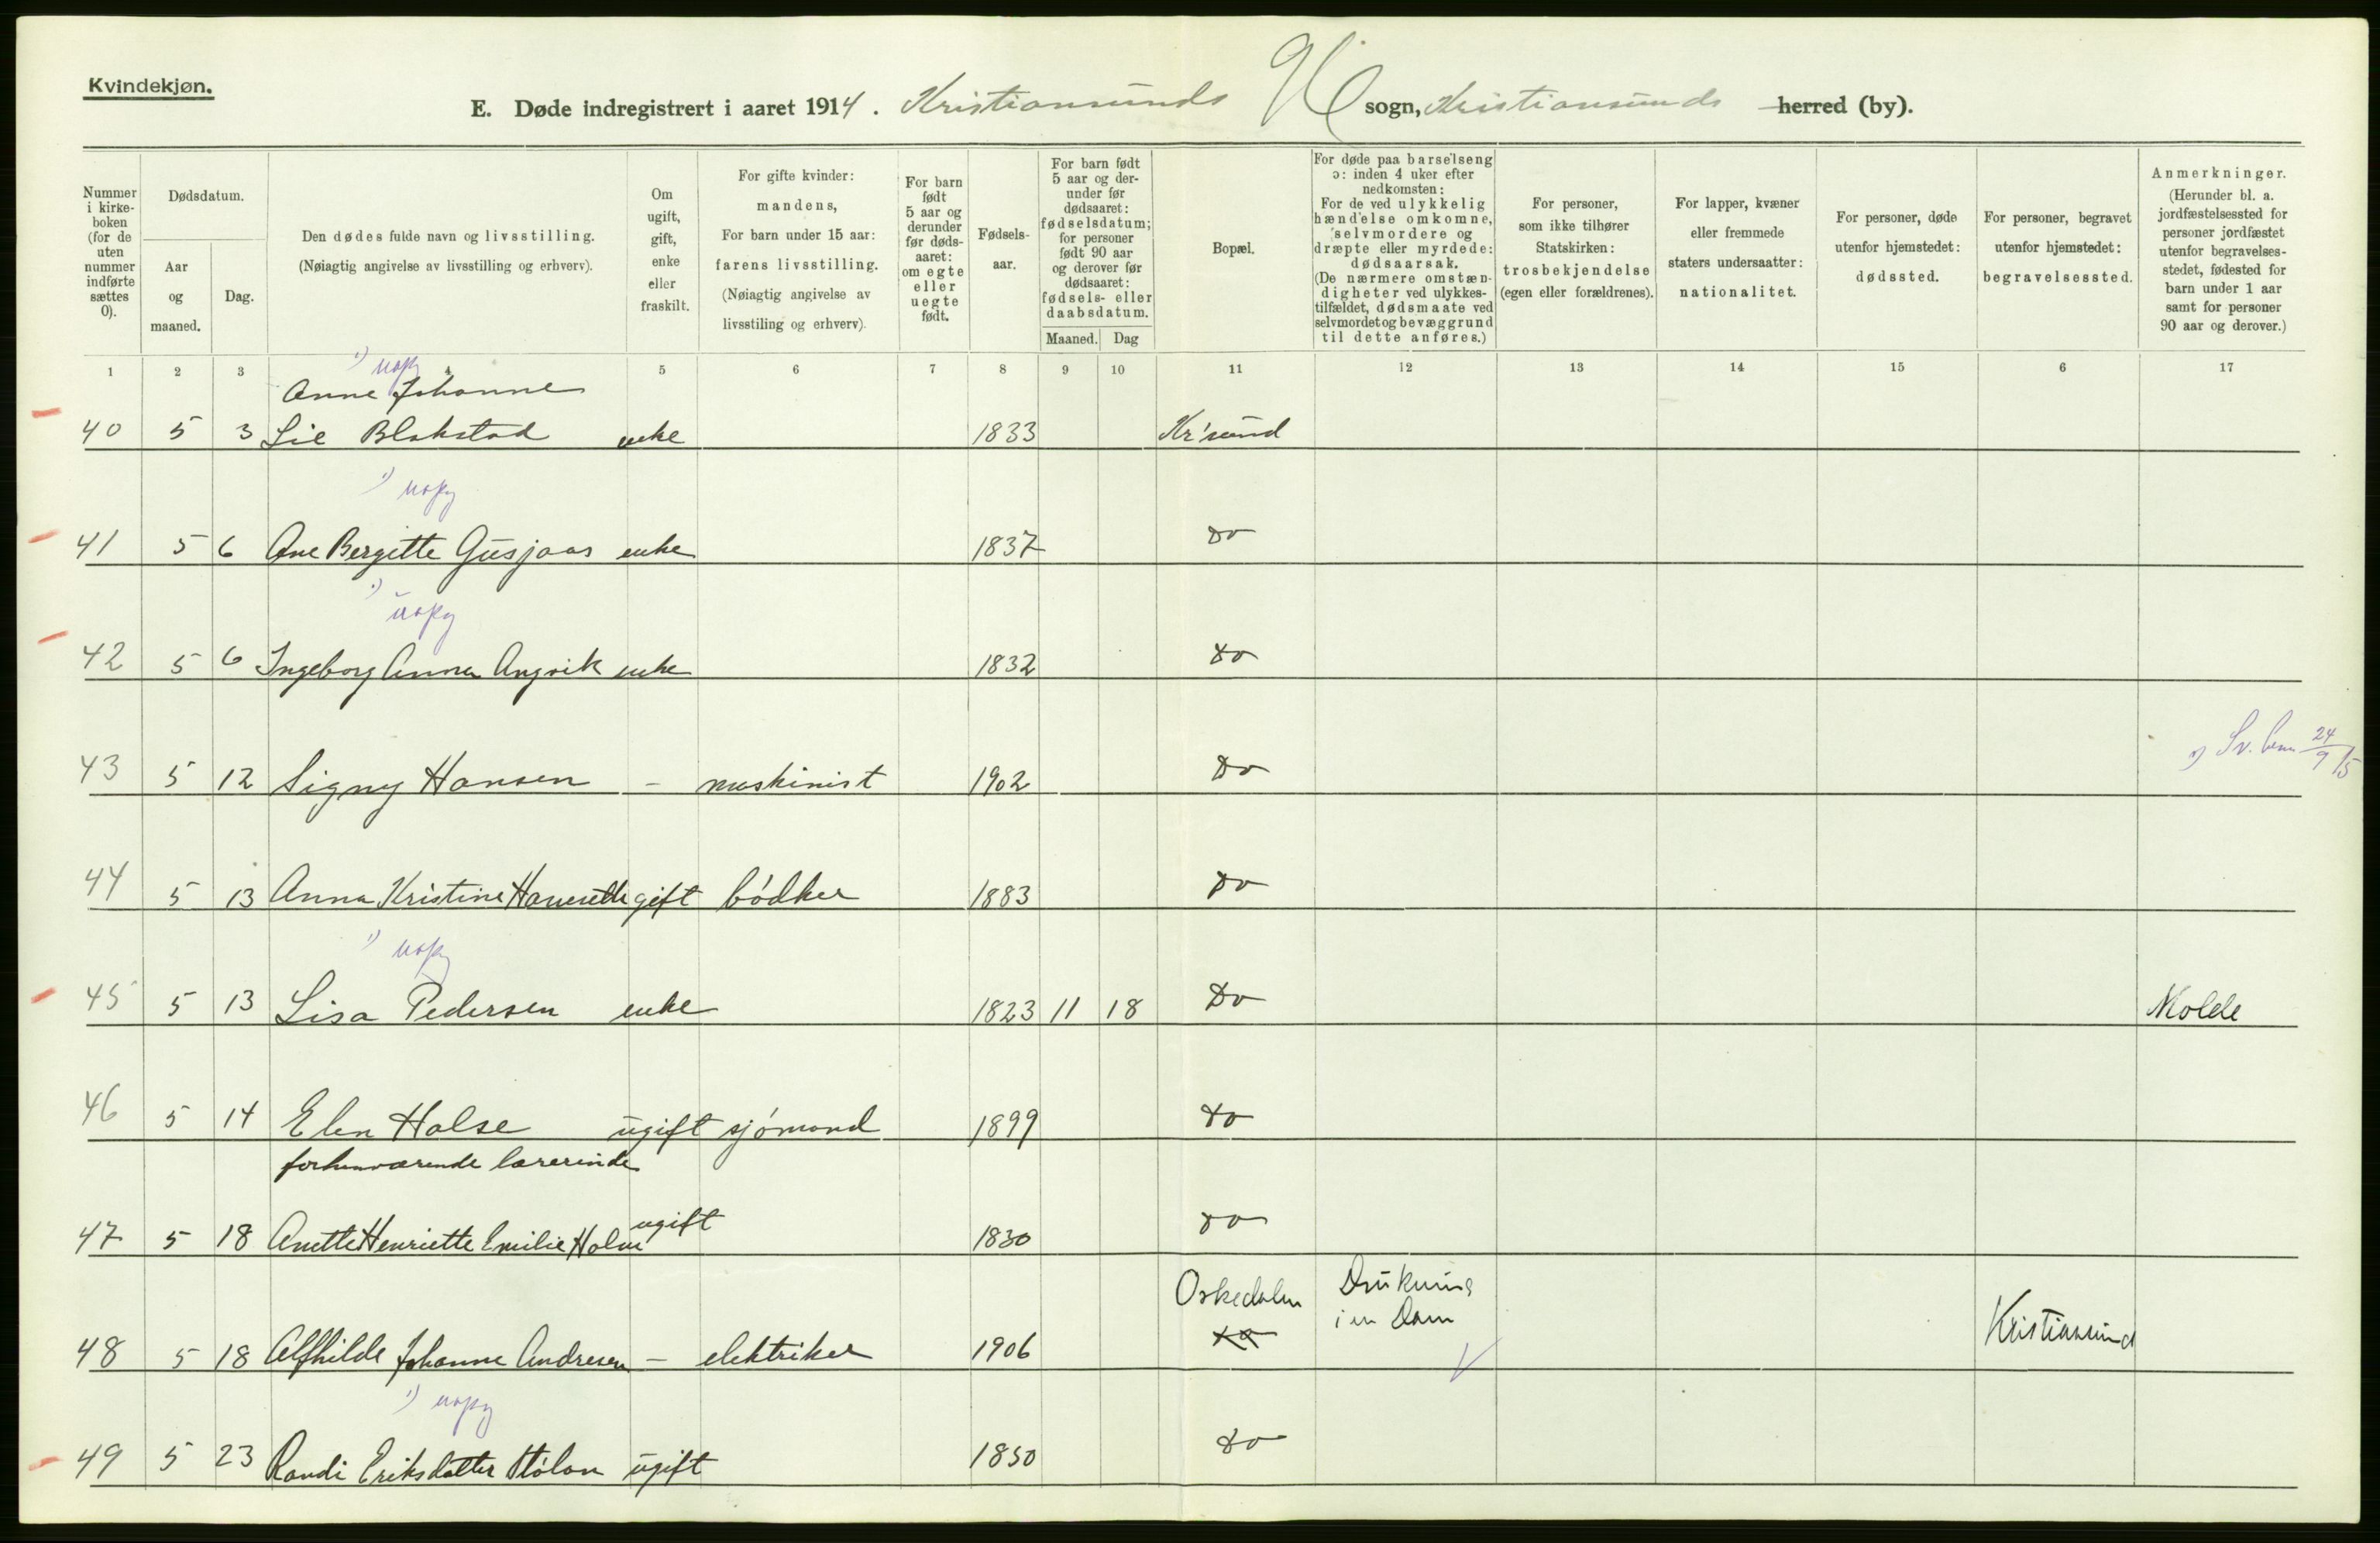 Kvindekjøn.
E. Døde indregistrert i aaret 1914. Kristiansunds sogn, Kristiansunds herred (by).
Nummer i kirkeboken (for de uten nummer indførte sættes 0).
Dødsdatum.
Aar og maaned.
Dag.
Den dødes fulde navn og livsstilling.
(Nøiagtig angivelse av livsstilling og erhverv).
Om ugift, gift, enke eller fraskilt.
For gifte kvinder: mandens,
For barn under 15 aar: farens livsstilling.
(Nøiagtig angivelse av livsstiling og erhverv).
For barn født 5 aar og derunder før dødsaaret: om egte eller uegte født.
Fødselsaar.
For barn født 5 aar og derunder før dødsaaret: fødselsdatum; for personer født 90 aar og derover før dødsaaret: fødsels- eller daabsdatum.
Maaned. Dag
Bopæl.
For døde paa barselseng ɔ: inden 4 uker efter nedkomsten:
For de ved ulykkelig hændelse omkomne, selvmordere og dræpte eller myrdede: dødsaarsak.
(De nærmere omstændigheter ved ulykkestilfældet, dødsmaate ved selvmordet og bevæggrund til dette anføres.)
For personer, som ikke tilhører Statskirken: trosbekjendelse (egen eller forældrenes).
For lapper, kvæner eller fremmede staters undersaatter: nationalitet.
For personer, døde utenfor hjemstedet: dødssted.
For personer, begravet utenfor hjemstedet: begravelsessted.
Anmerkninger.
(Herunder bl. a. jordfæstelsessted for personer jordfæstet utenfor begravelsesstedet, fødested for barn under 1 aar samt for personer 90 aar og derover.)
1 2 3 4 5 6 7 8 9 10 11 12 13 14 15 6 17
Anne Johanne
40 5 3 Lie Blakstad enke 1833 Kr'sund
41 5 6 Ane Bergitte Gusjaas enke 1837 do
42 5 6 Ingeborg Anna Angvik enke 1832 do
24/9 15
43 5 12 Signy Hansen - maskinist 1902 do
44 5 13 Anna Kristine gift bødker 1883 do
45 5 13 Lisa Pedersen enke 1823 11 18 do Molde
46 5 14 Elen Halse ugift sjømand 1899 do
forhenværende lærerinde
47 5 18 Anette Henriette Emilie Holm ugift 1830 do
Oskedalen Drukning
i en Dam
48 5 18 Alfhilde Johanne Andresen - elektriker 1906 do Kristiansund
49 5 23 Randi Eriksdatter Stølan ugift 1850 do